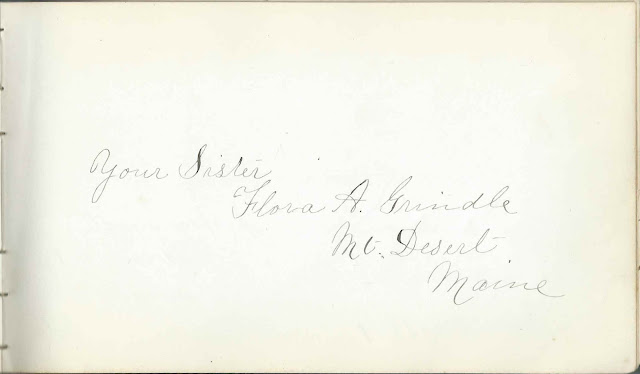 Your Sister
Flora A. Grindle
Mt. Desert
Maine